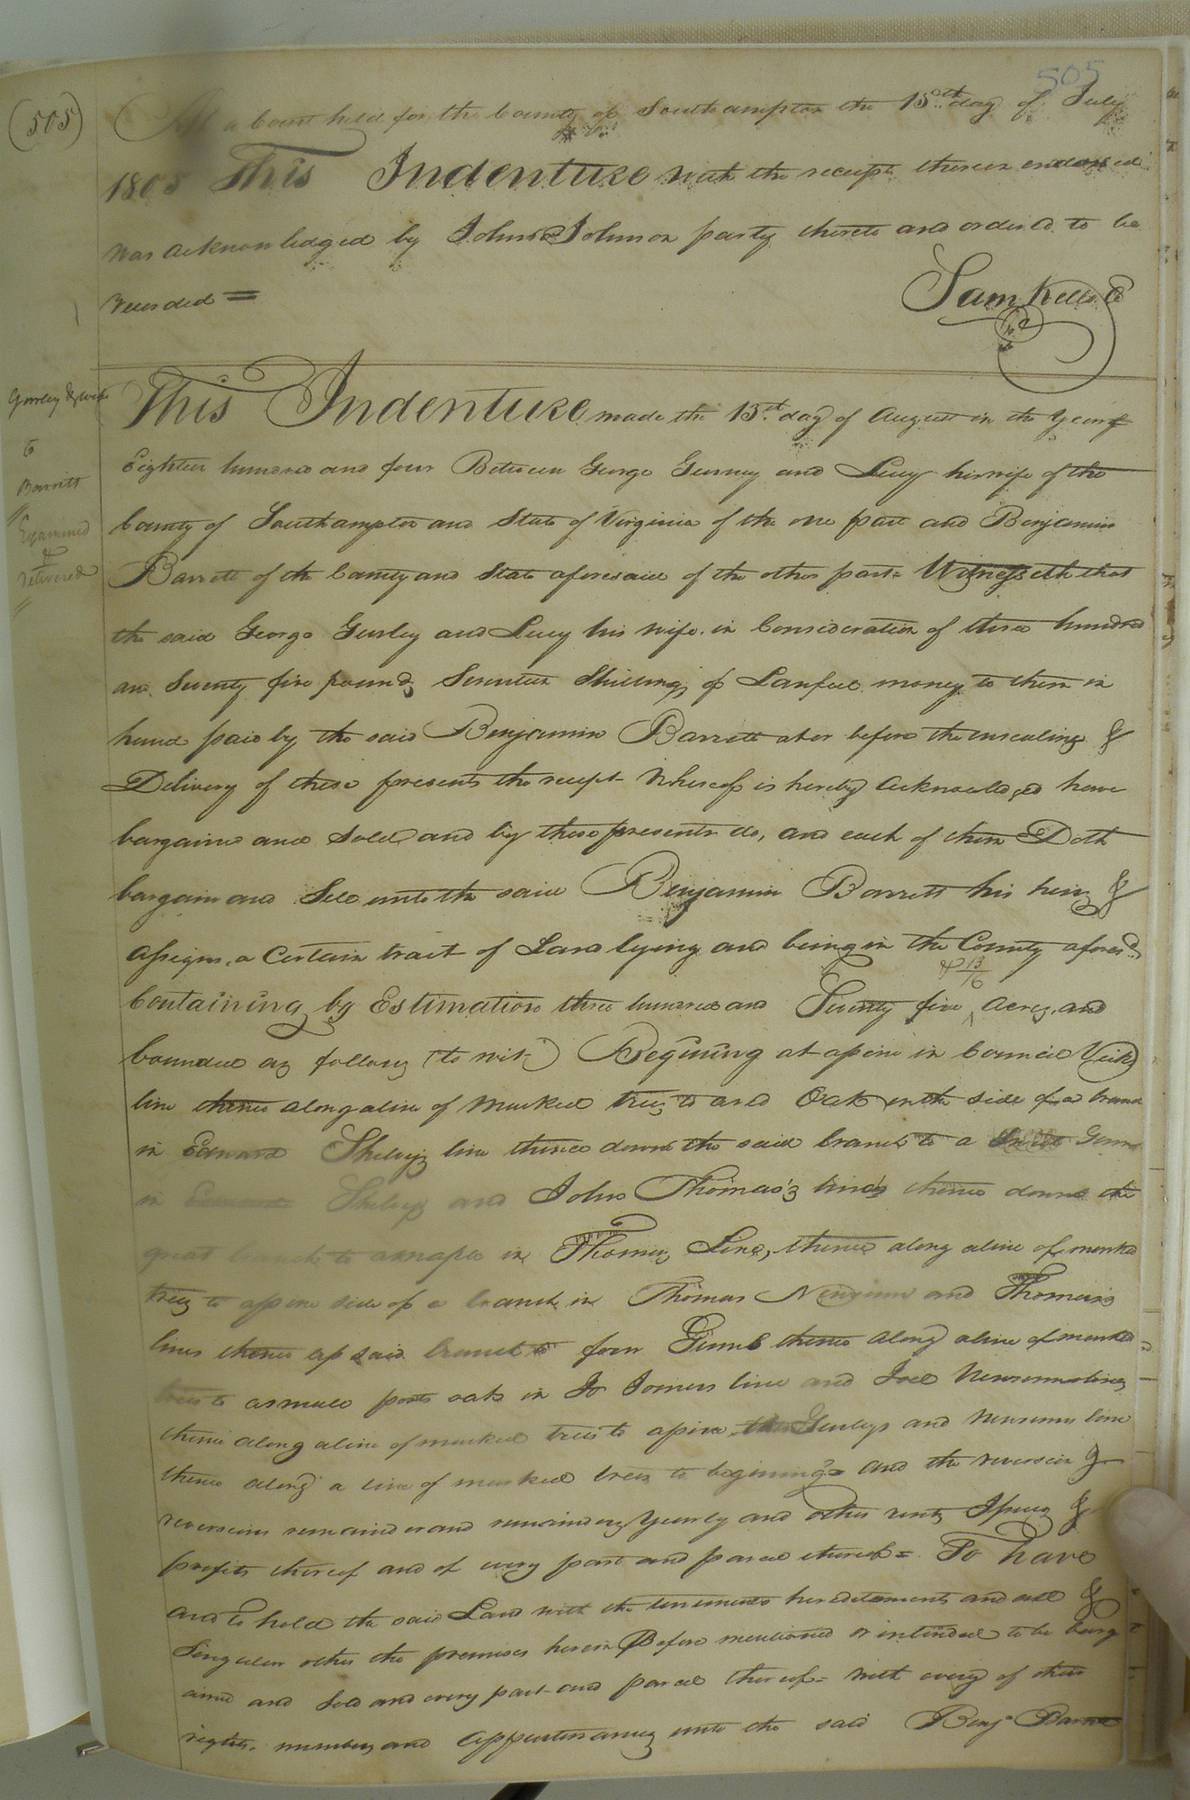 505
(505)
At a Court held for the County of Southampton the 15th day of July
1805 This Indenture with the receipt thereon endorsed
was acknowledged by Johnson party thereto and ordered to be
recorded =
Sam Kello Cl
Gurley & wife
to
Barritt
Examined
&
Delivered
This Indenture made the 15th day of August in the year of
Eighteen hundred and four Between George Gurney and Lucy his wife of the
County of Southampton and State of Virginia of the one part and Benjamin
Barrett of the County and State aforesaid of the other part = Witnesseth that
the said George Gurley and Lucy his wife in Consideration of three hundred
and Seventy five pounds Seventeen Shillings of Lawfull money to them in
hand paid by the said Benjamin Barrett at or before the ensealing &
Delivery of these presents the receipt whereof is hereby Acknowledged have
bargained and Sold and by these presents do, and each of them Doth
bargain and Sell unto the said Benjamin Barrett his heirs &
assigns, a Certain tract of Land lying and being in the County afores.d
Containing by Estimation three hundred and Seventy five & 13/16 Acres, and
bounded as follows (to wit) Begining at a pine in Council
line thence along a line of marked trees to a red Oak on the side of a branch
in Edward Shelvys line thence down the said branch to a Gum
in Shelvys and John Thomas's lines thence down the
great branch to a maple in Thomas Line, thence along a line of marked
trees to a pine side of a branch in Thomas Newsum and Thomas's
lines thence up said branch to four Gums thence along a line of marked
trees to a small post oak in Jo Joiners line and Joel Newsums lines
thence along a line of marked trees to a pine Gurleys and Newsums line
thence along a line of marked trees to begining = and the reversion &
reversions remainder and remainders yearly and other rents Issues &
profits thereof and of every part and parcel thereof = To have
and to hold the said Land with the tenements hereditaments and all &
Singular other the premises herein Before mentioned or intended to be barg
ained and Sold and every part and parcel thereof = with every of their
rights, members and appurtenances unto the said Benja Barrett